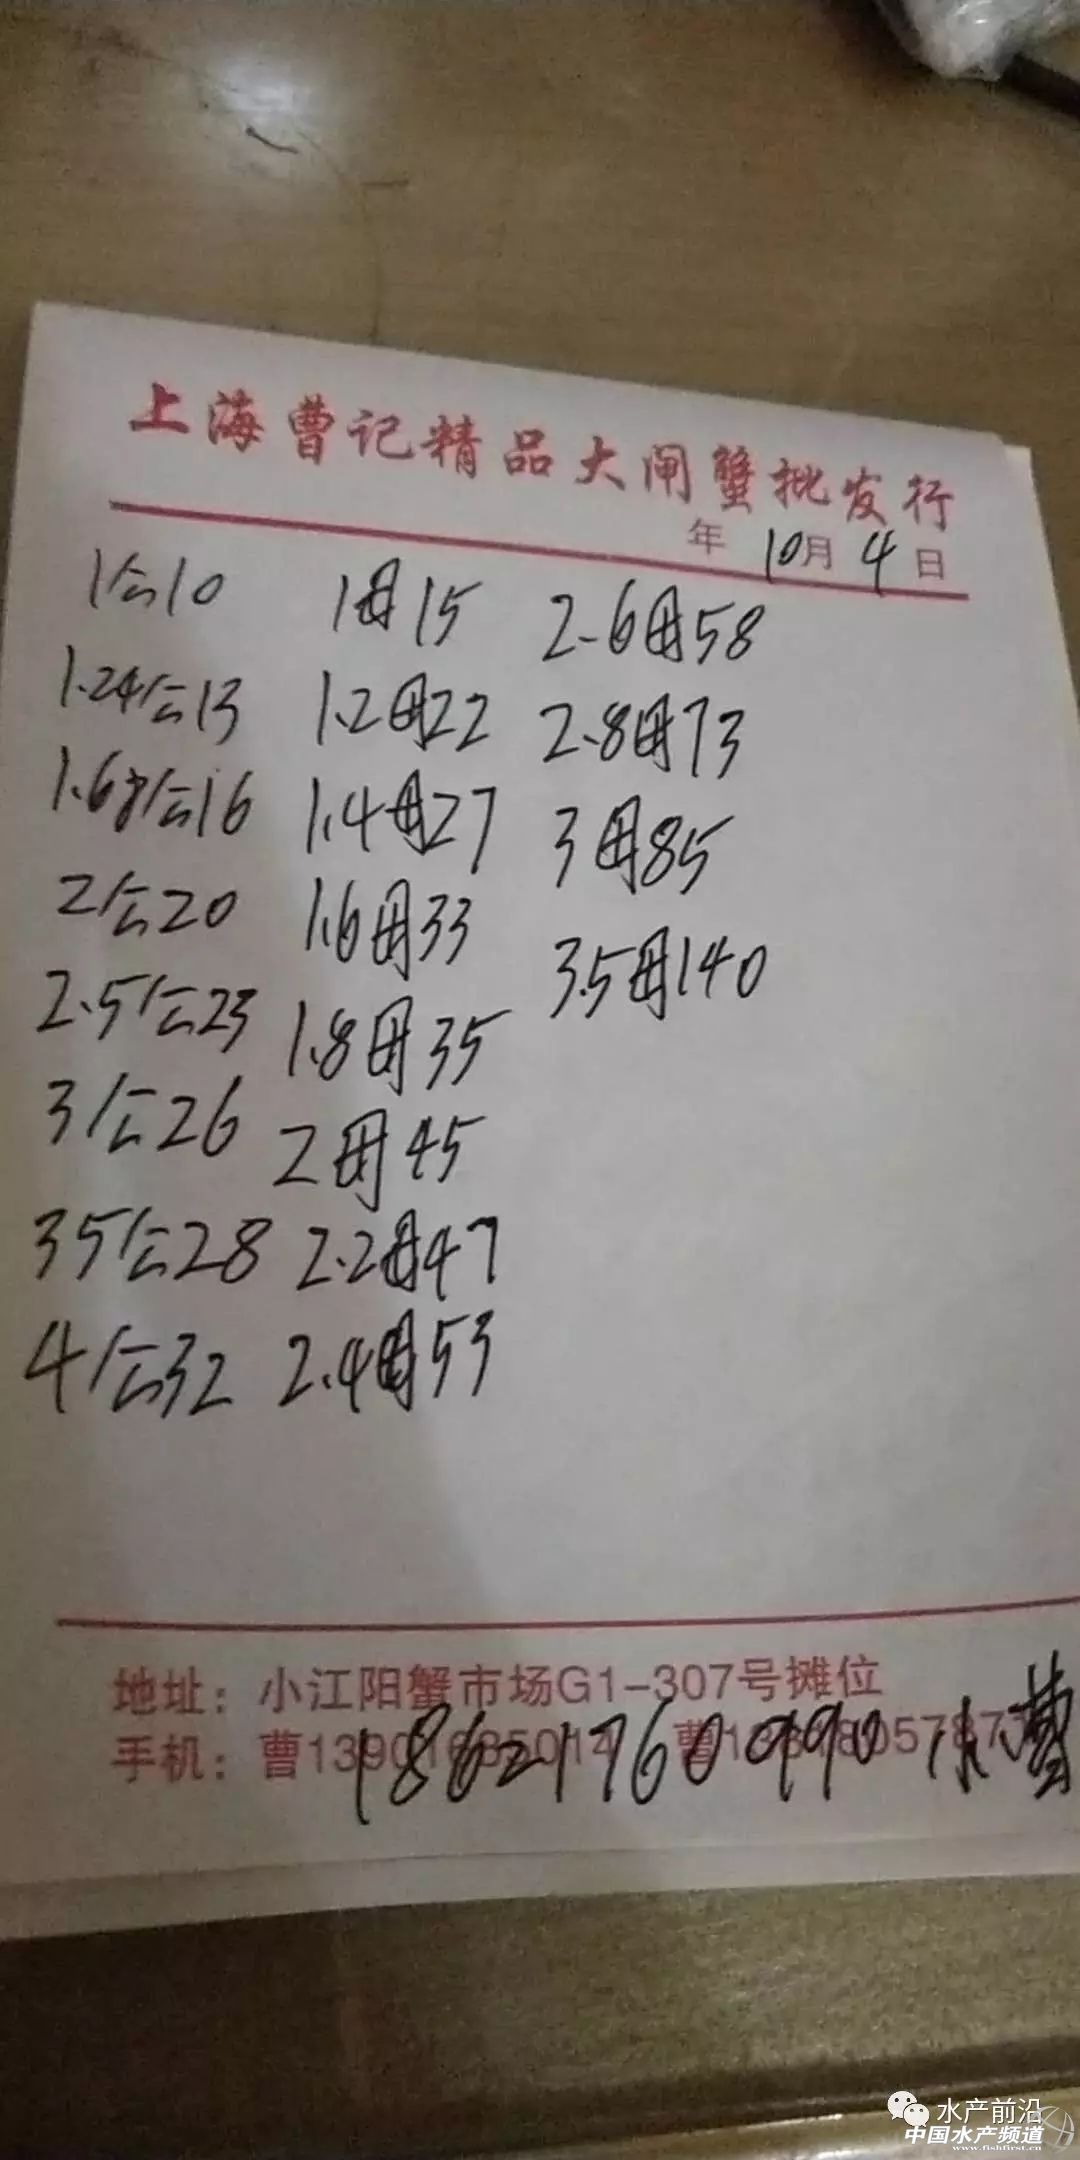 上海曹记精品大闸蟹批发行
年 10月 4日
1公10
1.24公13
1.68公16
2公20
2.5公23
3公26
35公28
4公32
1母15
1.2母22
1.4母27
1.6母33
1.8母35
2母45
2.2母47
2.4母53
2.6母58
2.8母73
3母85
3.5母140
地址：小江阳蟹市场G1-307号摊位
手机：曹139 曹1
18621760990 小曹
水产前沿
中国水产频道
www.fishfirst.cn